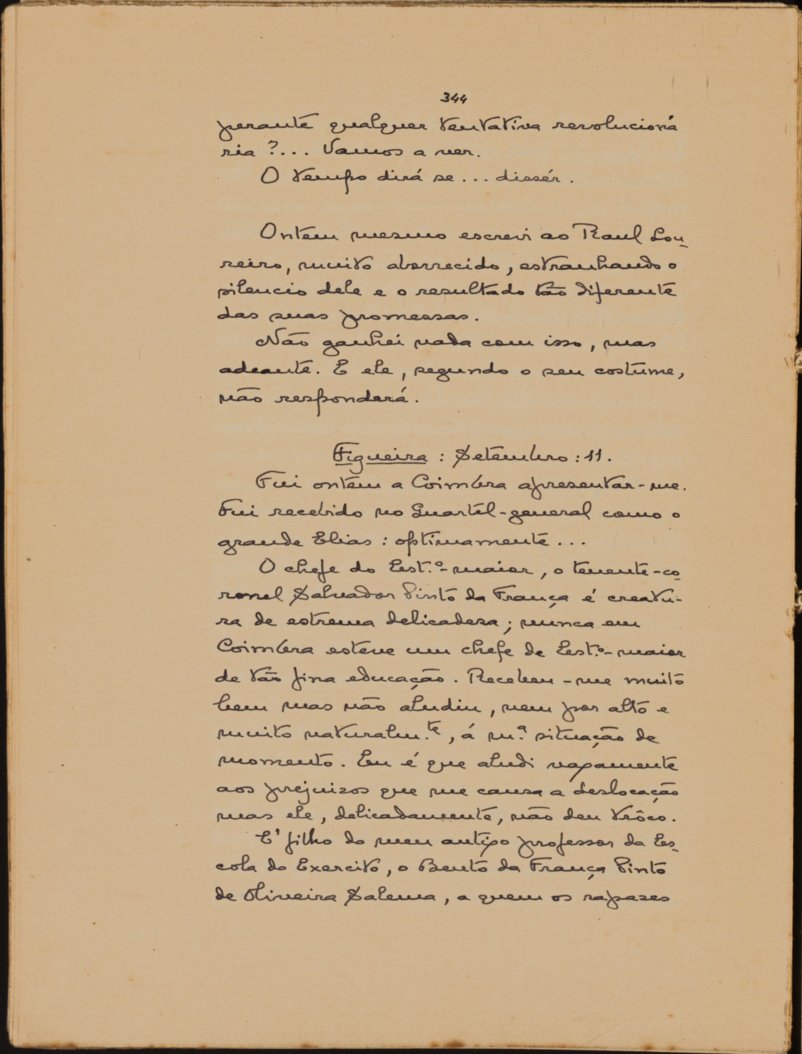 344
perante qualquer tentativa revolucioná
ria ?... Vamos a ver.
O tempo dirá se ... dissér.
Ontem mesmo escrevi ao Raul Lou-
reiro, muito aborrecido, estranhando o
silencio dele e o resultado tão diferente
das suas promessas.
Não ganhei nada com isso, mas
adeante. E ele, segundo o seu costume,
não responderá.
Figueira : Setembro : 11.
Fui ontem a Coimbra apresentar-me.
Fui recebido no Quartel-general como o
grande Elias : optimamente ...
O chefe do Est.º-maior, o tenente-co-
ronel Salvador Pinto da França é creatu-
ra de estrema delicadesa; nunca em
Coimbra esteve um chefe de Est.º-maior
de tão fina educação. Recebeu-me muito
bem mas não aludiu, nem por alto e
muito naturalm.te, á m.ª situação de
momento. Eu é que aludi vagamente
aos prejuizos que me causa a deslocação
mas ele, delicadamente, não deu trôco.
E' filho do meu antigo professor da Es-
cola do Exercito, o Bento da França Pinto
de Oliveira Salema, a quem os rapases